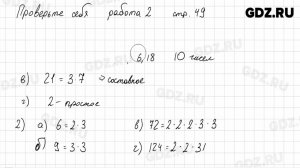 GDZ.RU
Проверьте себя работа 2 стр. 49
6,18 10 чисел
в) 21 = 3·7 - составное
г) 2 - простое
2) а) 6 = 2·3 в) 72 = 2·2·2·3·3
б) 9 = 3·3 г) 124 = 2·2·31
GDZ.RU